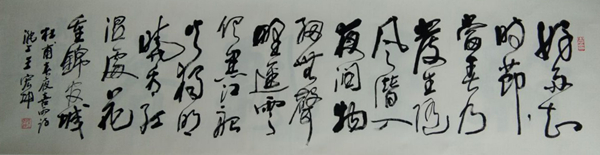 好雨知
時節
當春乃
發生隨
風潛入
夜潤物
細無聲
野逕雲
俱黑江船
火獨明
曉看紅
湿處花
重錦官城
杜甫春夜喜雨詩
王宏